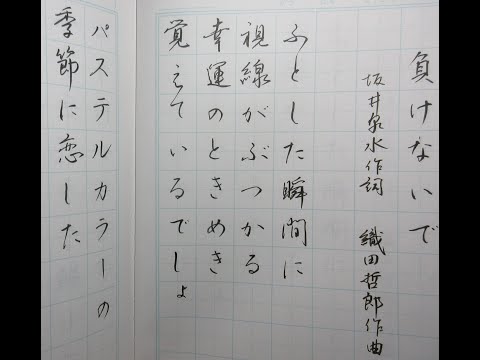 負けないで
坂井泉水作詞 織田哲郎作曲
ふとした瞬間に
視線がぶつかる
幸運のときめき
覚えているでしょ
パステルカラーの
季節に恋した